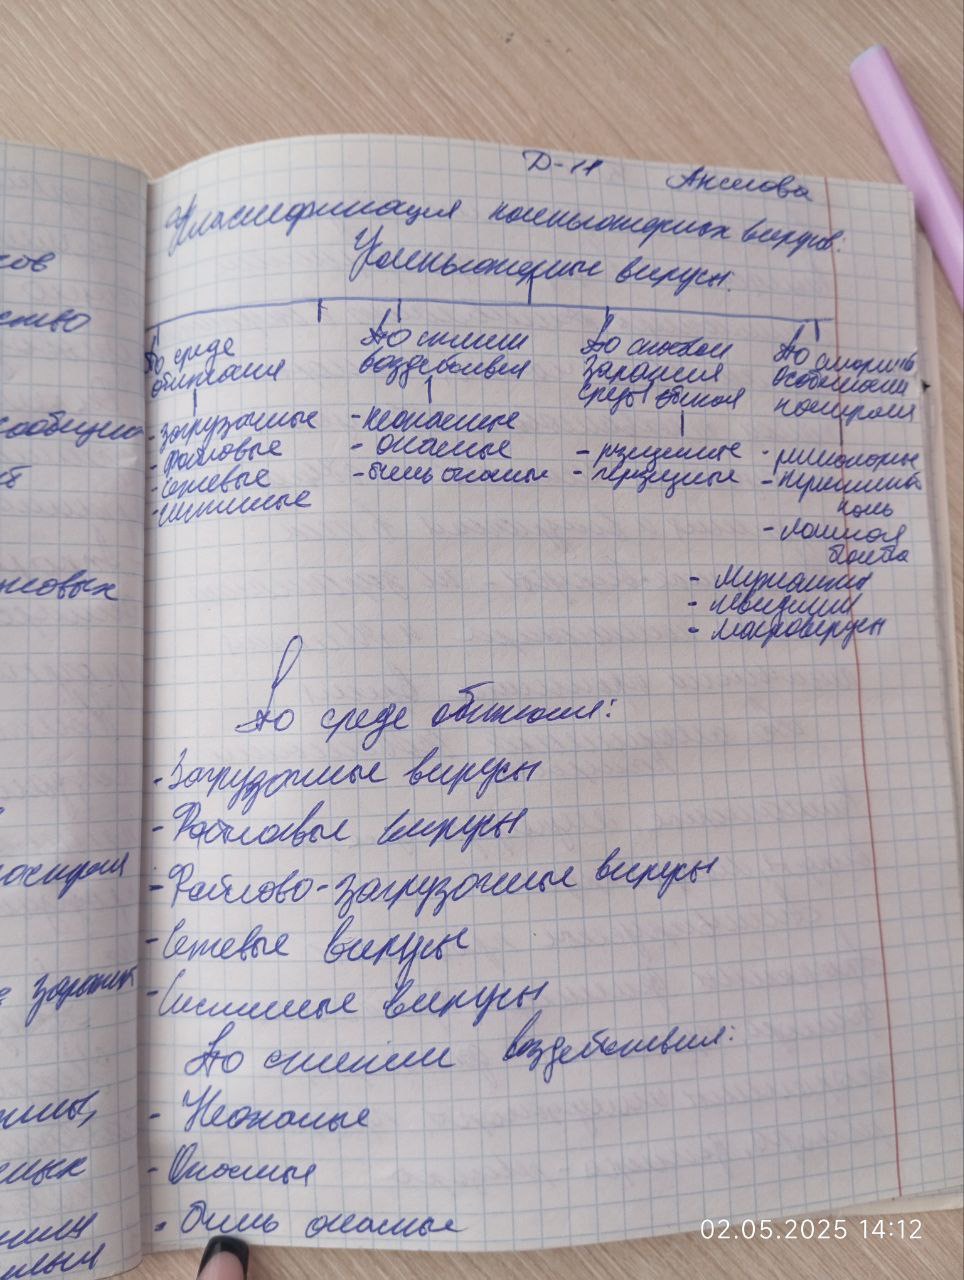 Д-11 Аксенова
Классификация компьютерных вирусов:
Компьютерные вирусы:
По среде обитания
- загрузочные
- файловые
- сетевые
- системные
По степени воздействия
- неопасные
- опасные
- очень опасные
По способам заражения среды обитания
- резидентные
- нерезидентные
По алгоритмической особенности построения
- репликаторы
- троянский конь
- логическая бомба
- мутанты
- невидимки
- макровирусы
По среде обитания:
- Загрузочные вирусы
- Файловые вирусы
- Файлово-загрузочные вирусы
- Сетевые вирусы
- Системные вирусы
По степени воздействия:
- Неопасные
- Опасные
- Очень опасные
сов
ство
сообщения
совых
заражения
02.05.2025 14:12